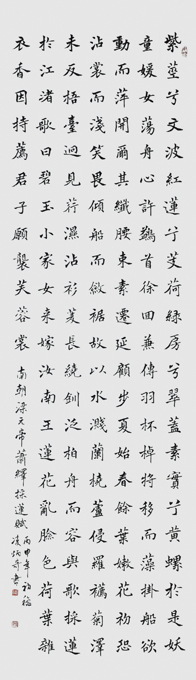 紫莖兮文波紅蓮兮芰荷綠房兮翠蓋素實兮黃螺於是妖
童媛女蕩舟心許鷁首徐回兼傳羽杯棹將移而藻掛船欲
動而萍開爾其纖腰束素遷延顧步夏始春餘葉嫩花初恐
沾裳而淺笑畏傾船而斂裾故以水濺蘭橈蘆侵羅襪菊澤
未反梧臺迥見荇濕沾衫菱長繞釧泛柏舟而容與歌採蓮
於江渚歌曰碧玉小家女來嫁汝南王蓮花亂臉色荷葉雜
衣香因持薦君子願襲芙蓉裳
南朝梁元帝蕭繹採蓮賦丙申年初
炳奇書